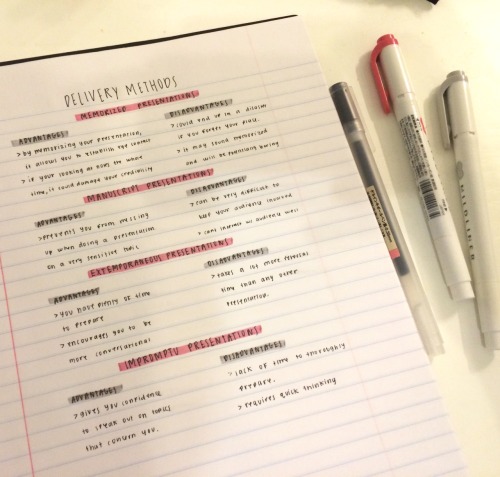 DELIVERY METHODS
MEMORIZED PRESENTATIONS
ADVANTAGES
> by memorizing your presentation,
it allows you to establish eye contact
> if your looking at notes the whole
time, it could damage your credibility
DISADVANTAGES
> could end up in a disaster
if you forget your place.
> it may sound memorized
and will be potentially boring
MANUSCRIPT PRESENTATIONS
ADVANTAGES
> prevents you from messing
up when doing a presentation
on a very sensitive topic
DISADVANTAGES
> can be very difficult to
keep your audience involved
> cant interact w/ audience well
EXTEMPORANEOUS PRESENTATIONS
ADVANTAGES
> you have plenty of time
to prepare
> encourages you to be
more conversational
DISADVANTAGES
> takes a lot more
time than any other
presentation.
IMPROMPTU PRESENTATIONS
ADVANTAGES
> gives you confidence
to speak out on topics
that concern you.
DISADVANTAGES
> lack of time to thoroughly
prepare.
> requires quick thinking
MILDLINER